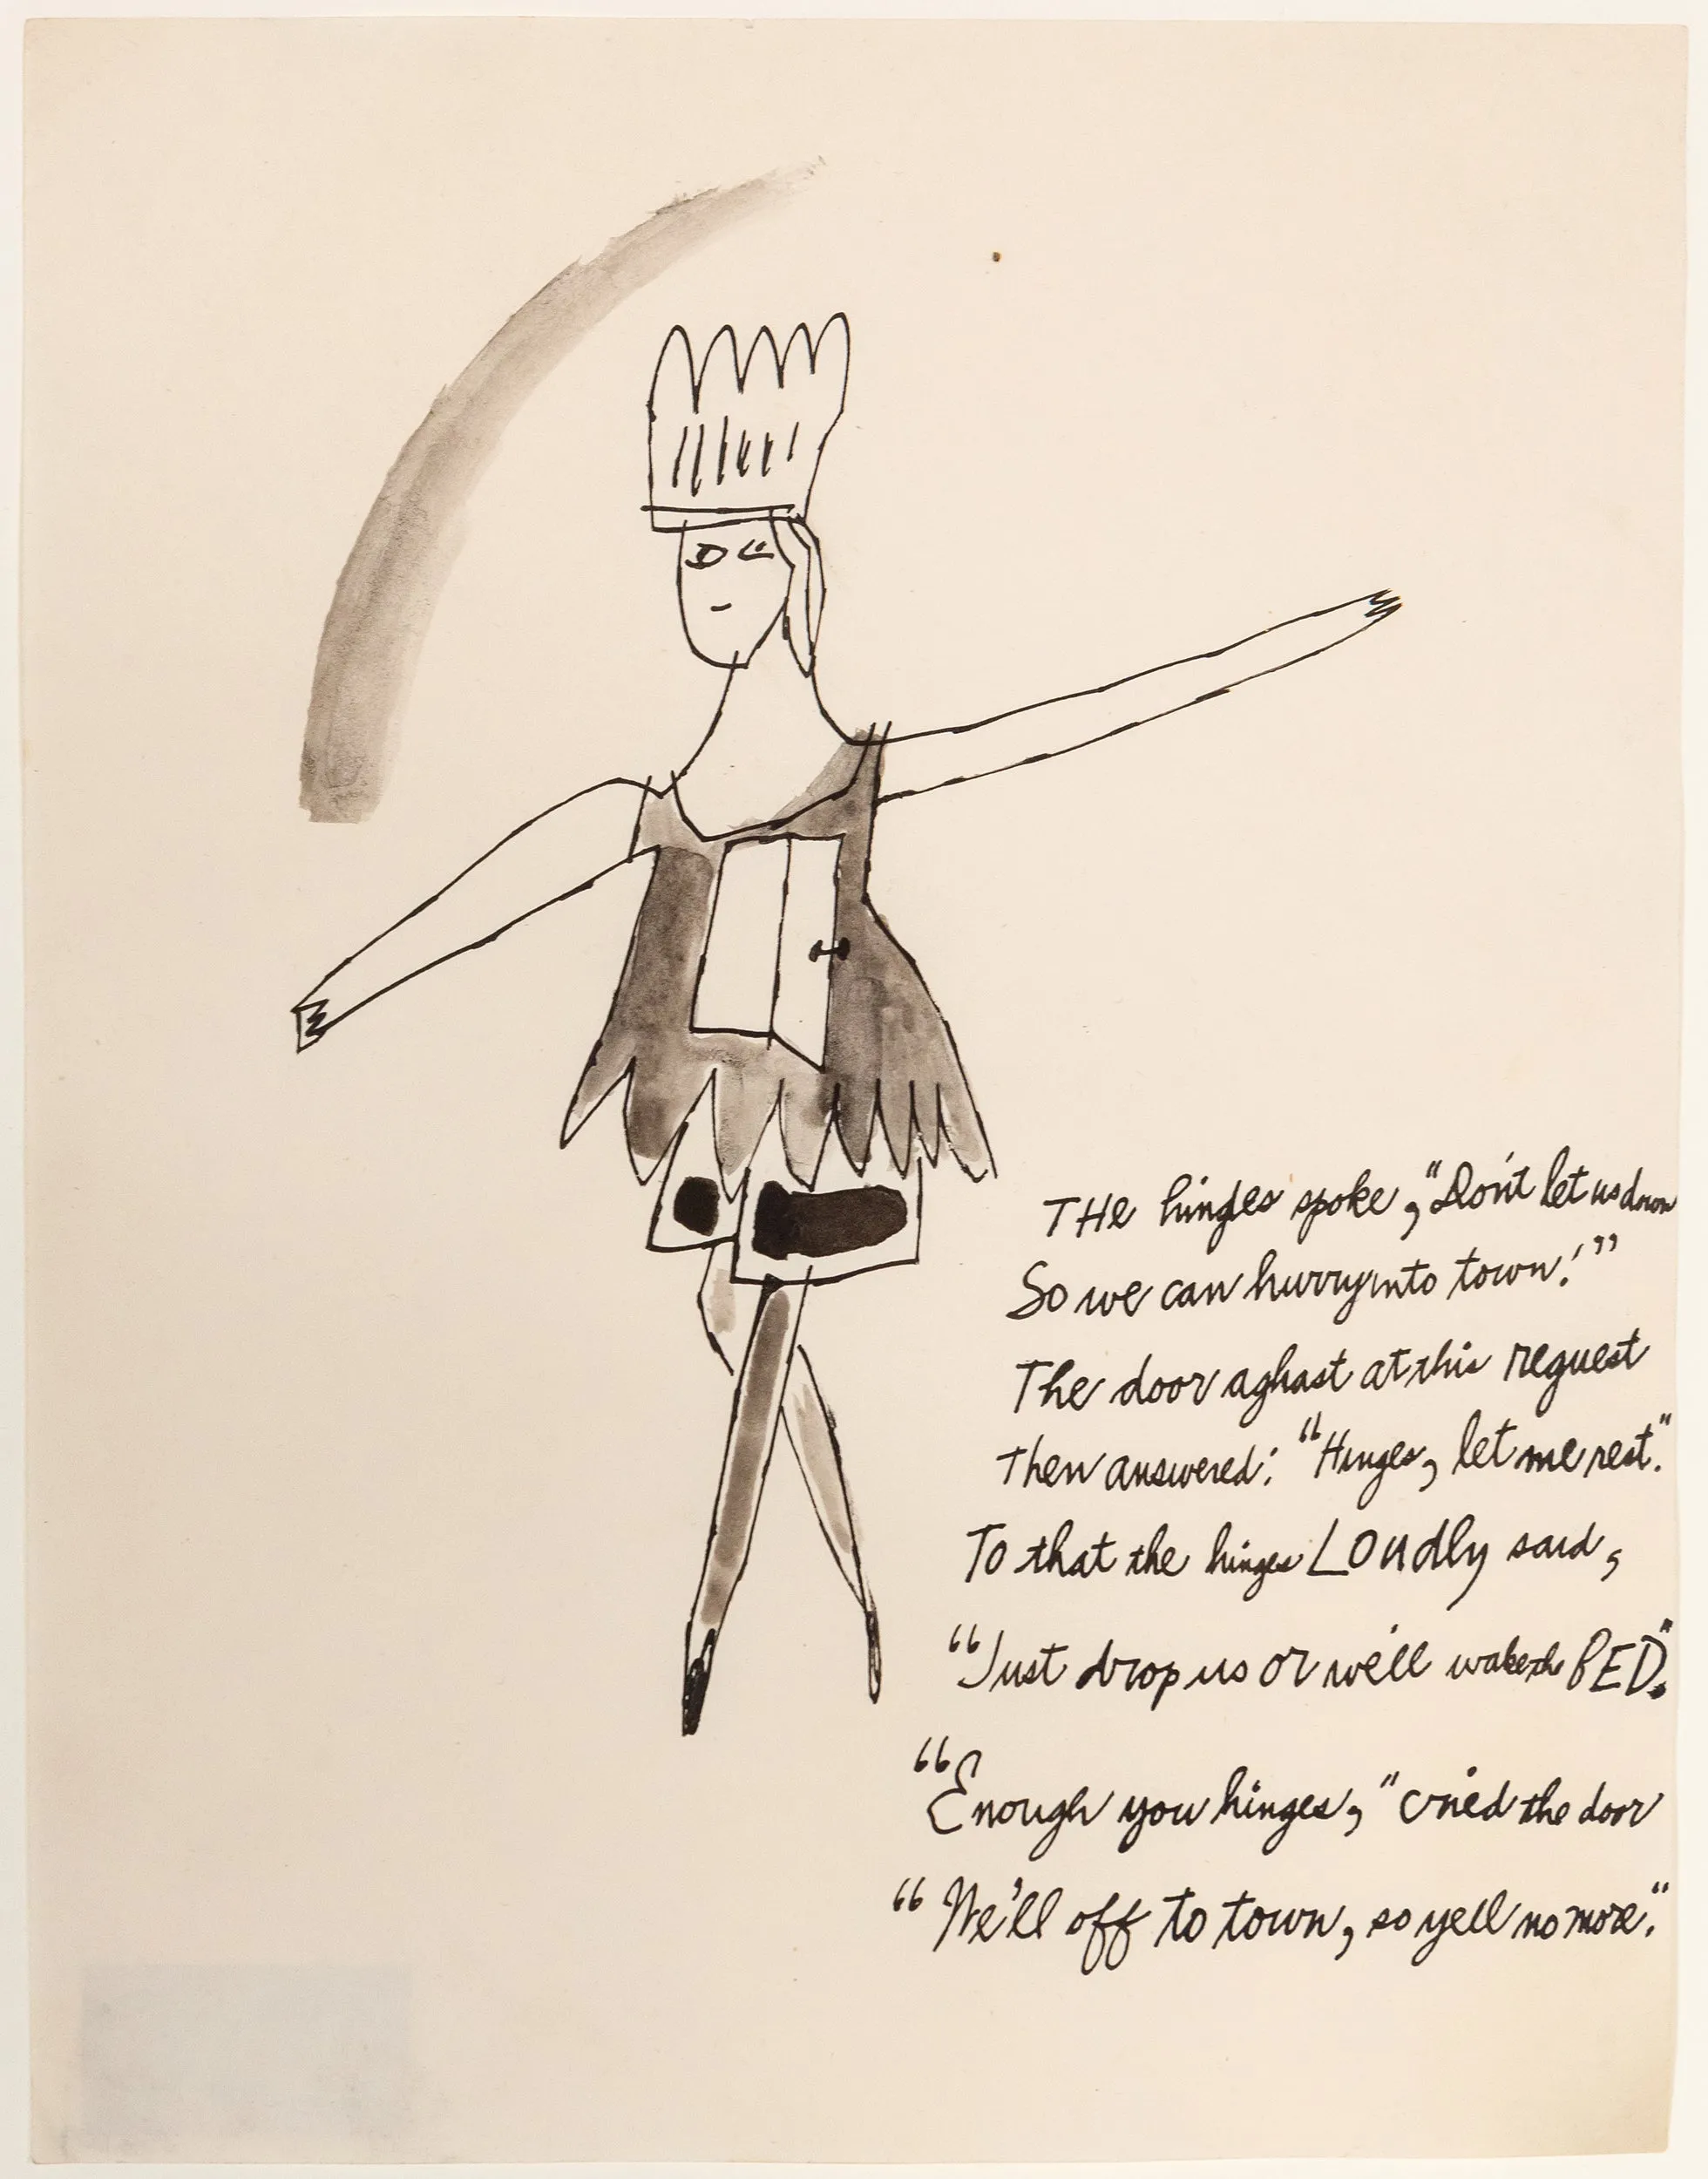 THe hinges spoke, "Don't let us down
So we can hurry into town!"
The door aghast at this request
Then answered: "Hinges, let me rest."
To that the hinges LOUdly said,
"Just drop us or we'll wake the BED."
"Enough you hinges," cried the door
"We'll off to town, so yell no more."